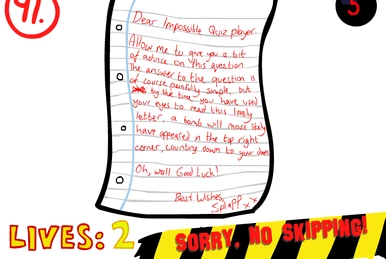 91.
5
Dear Impossible Quiz player
Allow me to give you a bit
of advice on this question
The answer to the question is
of course painfully simple, but
by the time you have used
your eyes to read this lovely
letter, a bomb will most likely
have appeared in the top right
corner, counting down to your doom
Oh, well Good Luck!
Best Wishes,
Splapp xx
LIVES: 2
SORRY, NO SKIPPING!